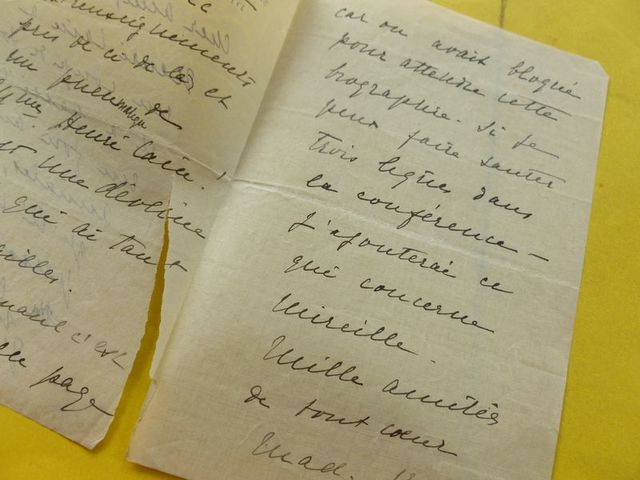 renseignements
pris de ci de là et
un pneumatique de
Mme Henri Cain !
est une déveine
qui ai tant
c'est
en page
car on avait bloqué
pour attendre cette
biographie. Si je
peux faire sauter
trois lignes dans
la conférence –
J'ajouterai ce
qui concerne
Mireille.
Mille amitiés
de tout cœur
Mad.